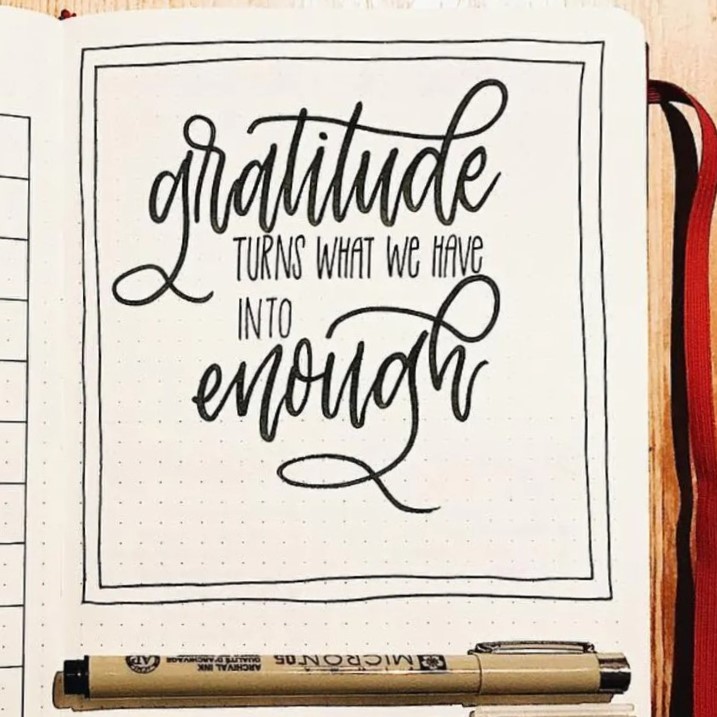 gratitude
TURNS WHAT WE HAVE
INTO
enough
MICRON 05
ARCHIVAL INK
QUALITÉ D'ARCHIVAGE
AP